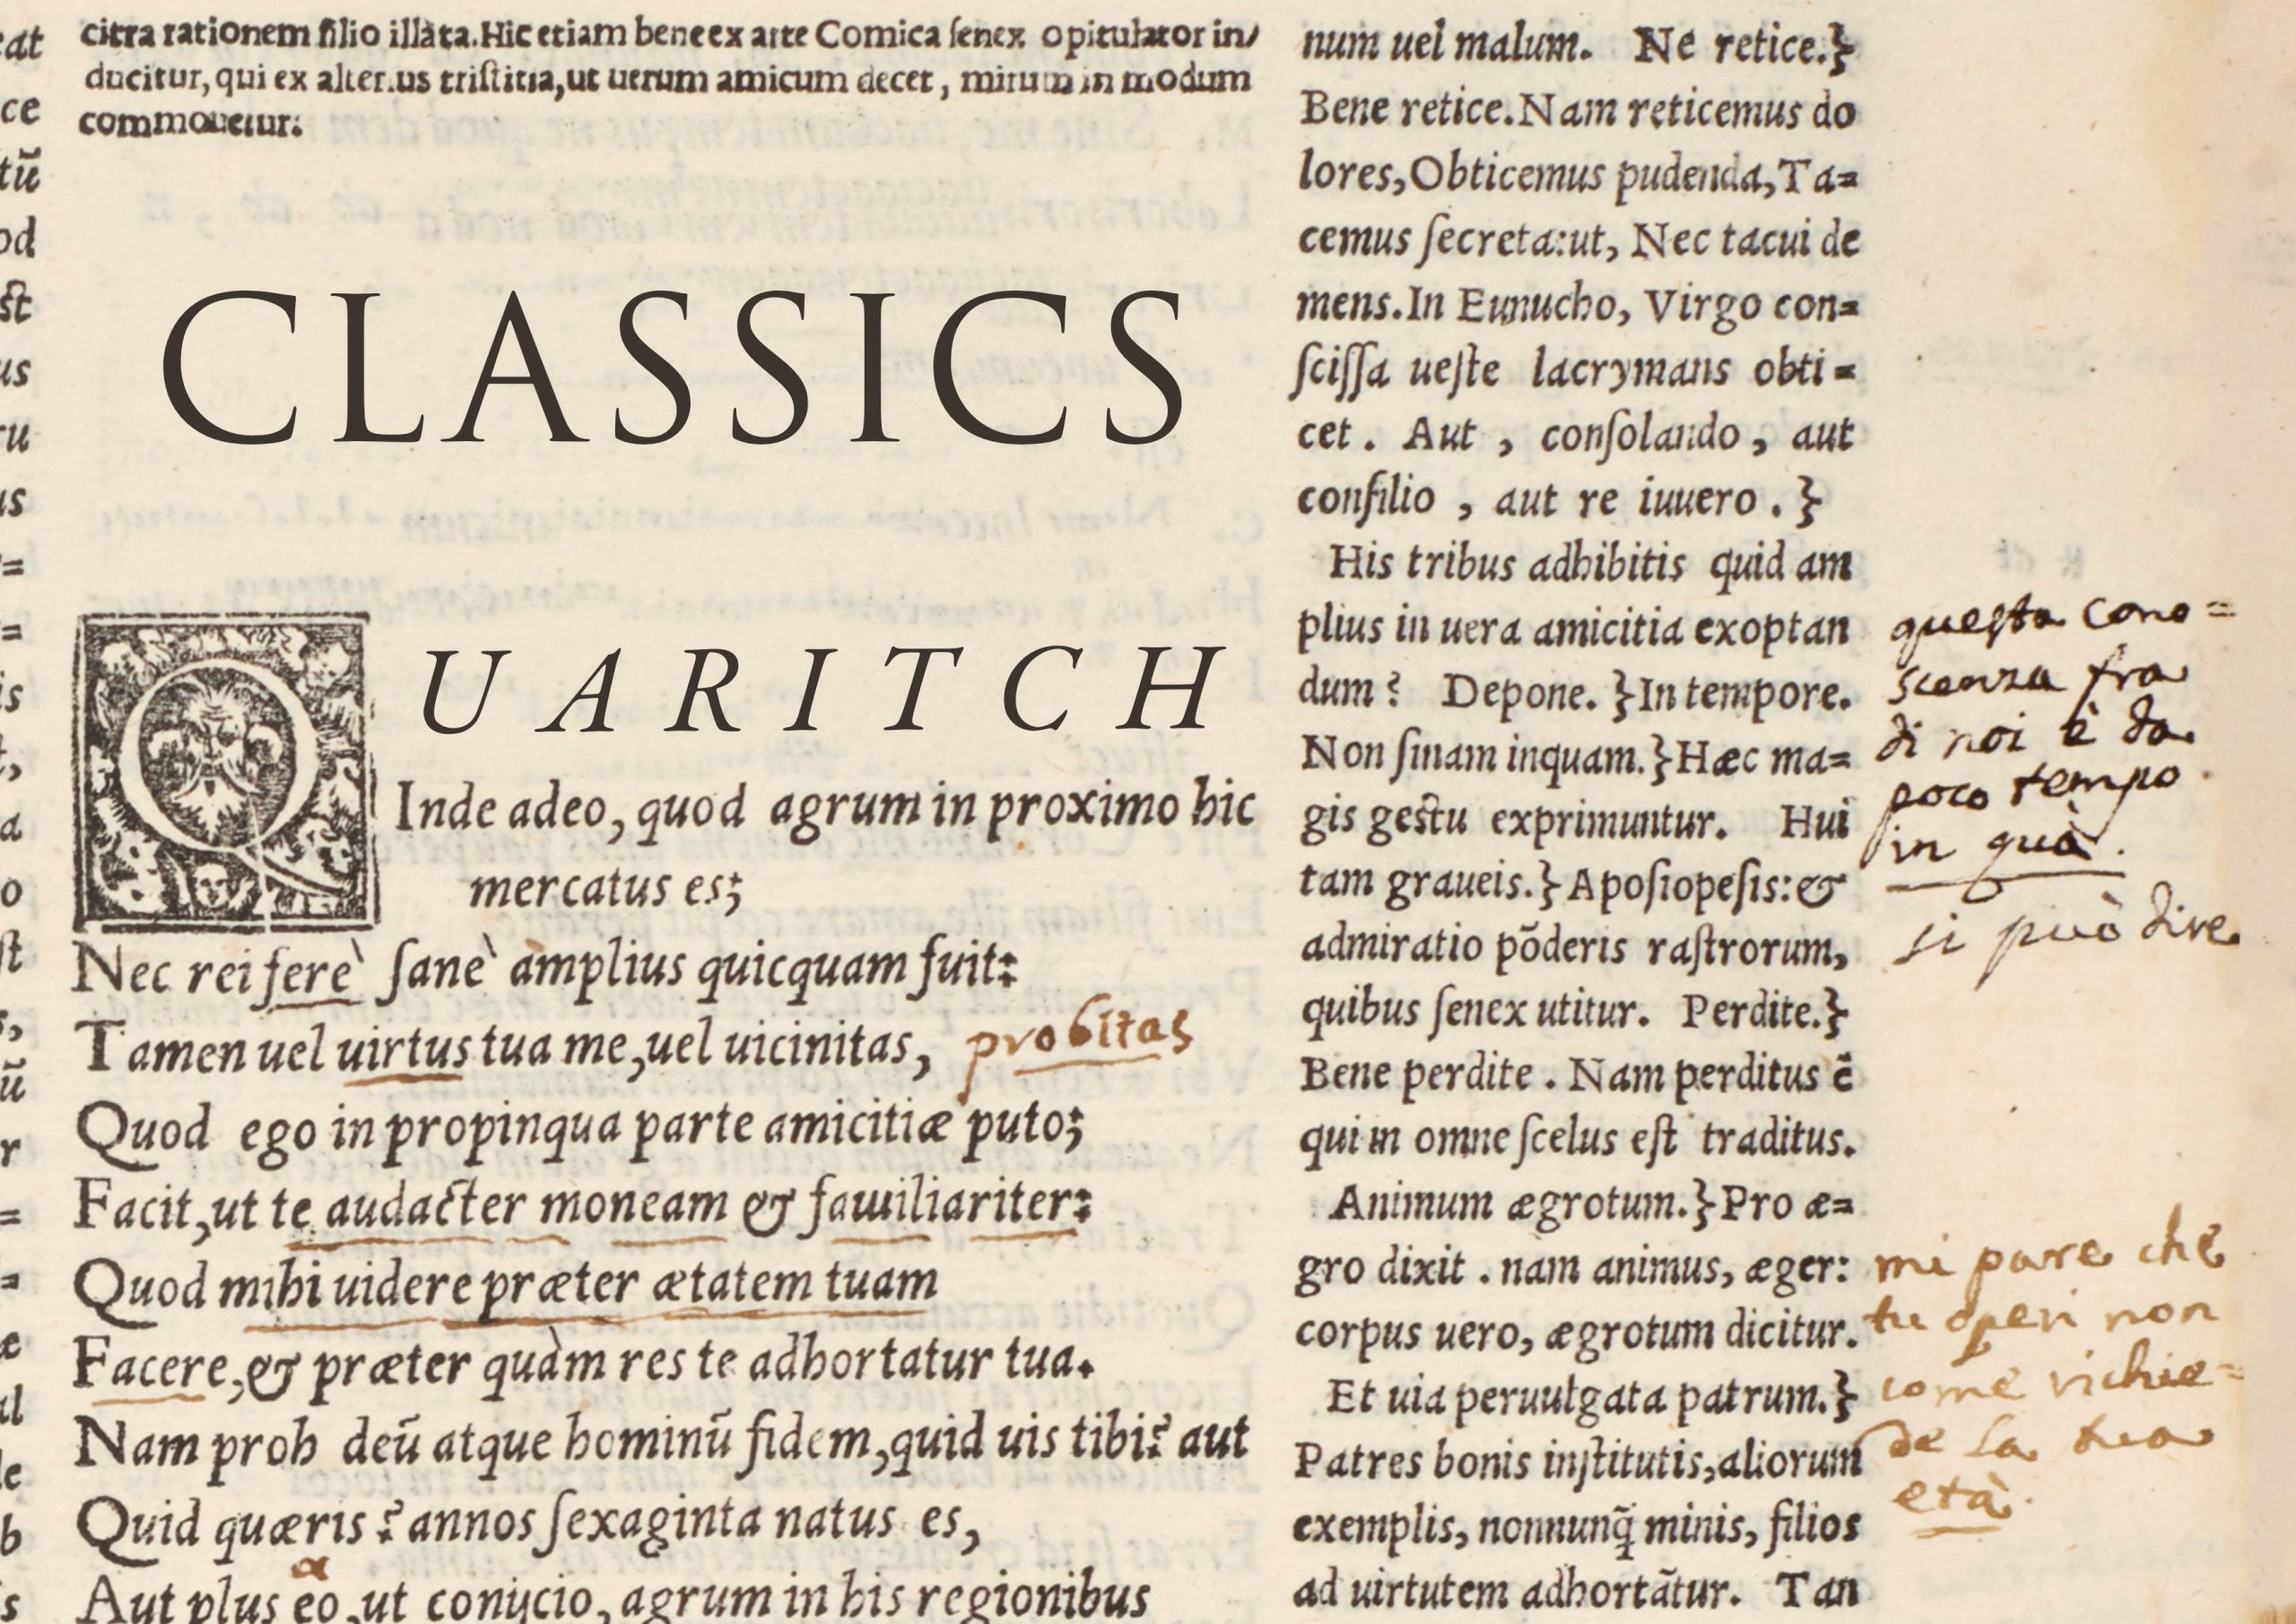 citra rationem filio illata. Hic etiam bene ex arte Comica ſenex opitulator in/
ducitur, qui ex alterius triſtitia, ut uerum amicum decet, mirum in modum
commouetur.
CLASSICS
QUARITCH
Inde adeo, quod agrum in proximo hic
mercatus es;
Nec rei ferè ſanè amplius quicquam fuit:
Tamen uel uirtus tua me, uel uicinitas, probitas
Quod ego in propinqua parte amicitiæ puto;
Facit, ut te audacter moneam & familiariter:
Quod mihi uidere præter ætatem tuam
Facere, & præter quàm res te adhortatur tua.
Nam proh deū atque hominū fidem, quid uis tibi? aut
Quid quæris? annos ſexaginta natus es,
a
Aut plus eo, ut conijcio, agrum in his regionibus
num uel malum. Ne retice.}
Bene retice. Nam reticemus do
lores, Obticemus pudenda, Ta=
cemus ſecreta: ut, Nec tacui de
mens. In Eunucho, Virgo con=
ſciſſa ueſte lacrymans obti=
cet. Aut, conſolando, aut
conſilio, aut re iuuero.}
His tribus adhibitis quid am
plius in uera amicitia exoptan
dum? Depone.} In tempore.
Non ſinam inquam.} Hæc ma=
gis geſtu exprimuntur. Hui
tam graueis.} Apoſiopeſis: &
admiratio pōderis raſtrorum,
quibus ſenex utitur. Perdite.}
Bene perdite. Nam perditus ē
qui in omne ſcelus eſt traditus.
Animum ægrotum.} Pro æ=
gro dixit. nam animus, æger:
corpus uero, ægrotum dicitur.
Et uia peruulgata patrum.}
Patres bonis inſtitutis, aliorum
exemplis, nonnunq̄ minis, filios
ad uirtutem adhortātur. Tan
questa cono=
scenza fra
di noi è da
poco tempo
in quà.
si può dire
mi pare che
tu operi non
come richie=
de la tua
età.
eat
ce
tū
od
ſt
us
ru
us
=
=
is
t,
a
o
ſt
s,
ū
r
=
=
e
al
le
b
s